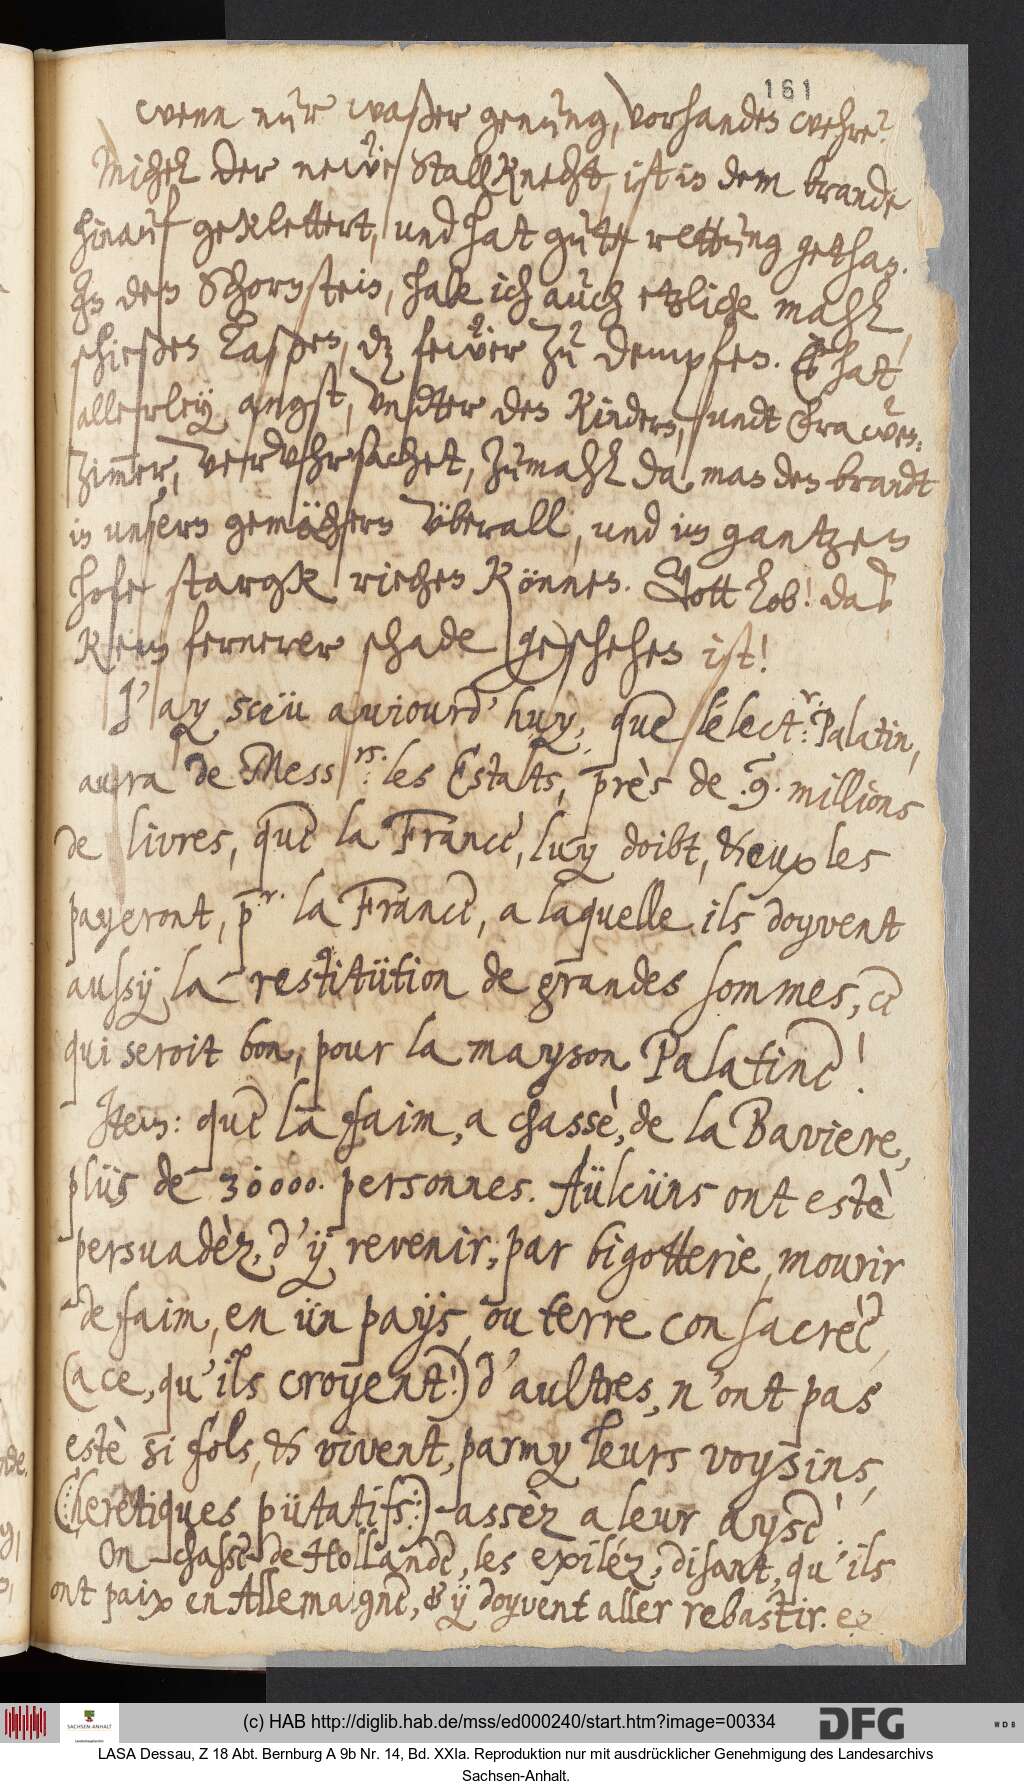 161
wenn nur waßer genung, vorhanden wehre?
Michel der newe Stallknecht, ist in dem brande
hinauf geklettert, und hat gute rettung gethan.
In den Schornstein, habe ich auch etzliche mahl,
schießen laßen, dz fewer zu dempfen. Es hat
allerley angst, undter den kindern, undt Frawen=
zimmer, veruhrsachet, zumahl da man den brandt
in unsern gemächern überall, und im gantzen
hofe stargk riechen können. Gott lob! daß
kein fernerer schade (ge)schehen ist!
J'ay sceü aujourd'huy, que l'Elect:r Palatin,
aura de Mess:rs les Estats, près de .9. millions
de livres, que la France, luy doibt, & eux les
payeront, pr. la France, a laquelle ils doyvent
aussÿ la restitütion de grandes sommes, ce
qui seroit bon, pour la mayson Palatine!
Item: que la faim, a chassè, de la Baviere,
plüs de 30000. personnes. Aülcüns ont estè
persuadèz, d'ÿ revenir, par bigotterie, mourir
de faim, en ün paÿs, ou terre consacrée,
(a ce, qu'ils croyent!) d'aultres, n'ont pas
estè si fols, & vivent, parmy leurs voysins,
(:heretiques pütatifs:) assèz a leur ayse.
On chasse de Hollande, les exiléz, disant, qu'ils
ont paix en Allemaigne, & ÿ doyvent aller rebastir.
(c) HAB http://diglib.hab.de/mss/ed000240/start.htm?image=00334
SACHSEN-ANHALT
DFG
WDB
LASA Dessau, Z 18 Abt. Bernburg A 9b Nr. 14, Bd. XXIa. Reproduktion nur mit ausdrücklicher Genehmigung des Landesarchivs
Sachsen-Anhalt.